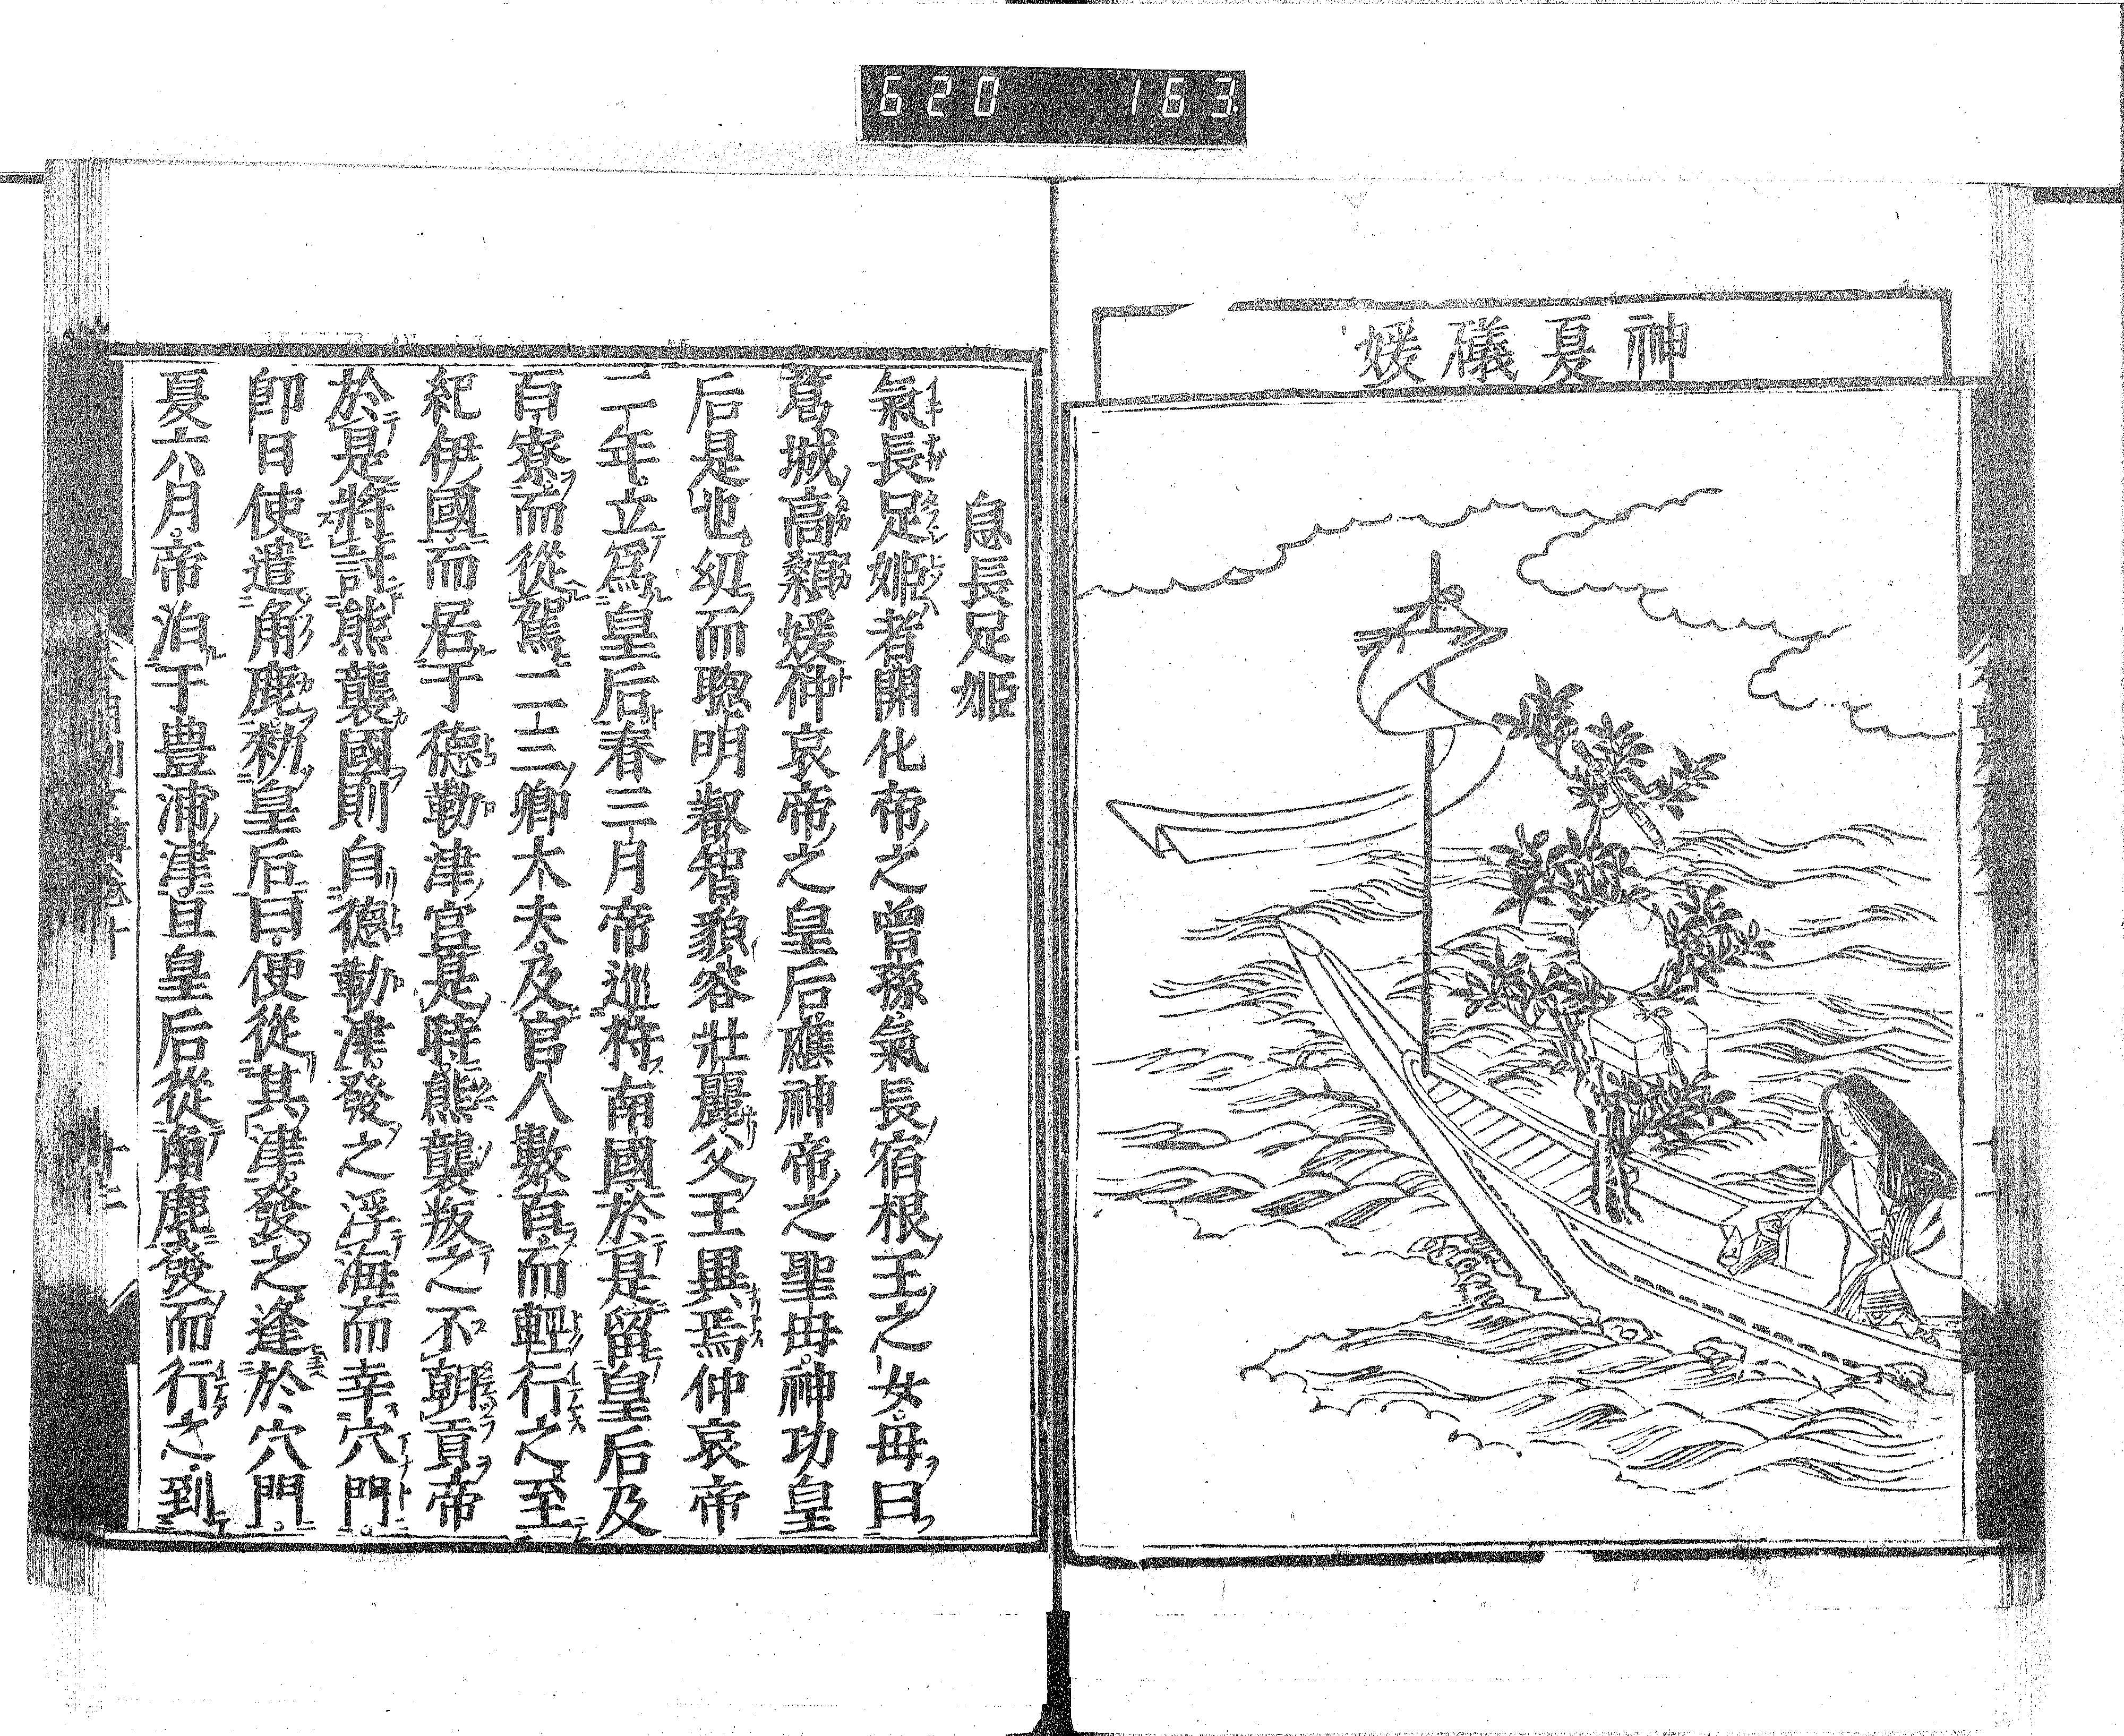 620 163
神夏礒媛
息長足姬
氣長足姬者開化帝之曾孫氣長宿根王之女母曰
葛城高顙媛仲哀帝之皇后應神帝之聖母神功皇
后是也幼而聰明叡智貌容壯麗父王異焉仲哀帝
二年立爲皇后春三月帝巡狩南國於是留皇后及
百寮而從駕二三卿大夫及官人數百而輕行之至
紀伊國而居于德勒津宮是時熊襲叛之不朝貢帝
於是將討熊襲國則自德勒津發之浮海而幸穴門
卽日使遣角鹿勑皇后曰便從其津發之逢於穴門
夏六月帝泊于豊浦津且皇后從角鹿發而行之到